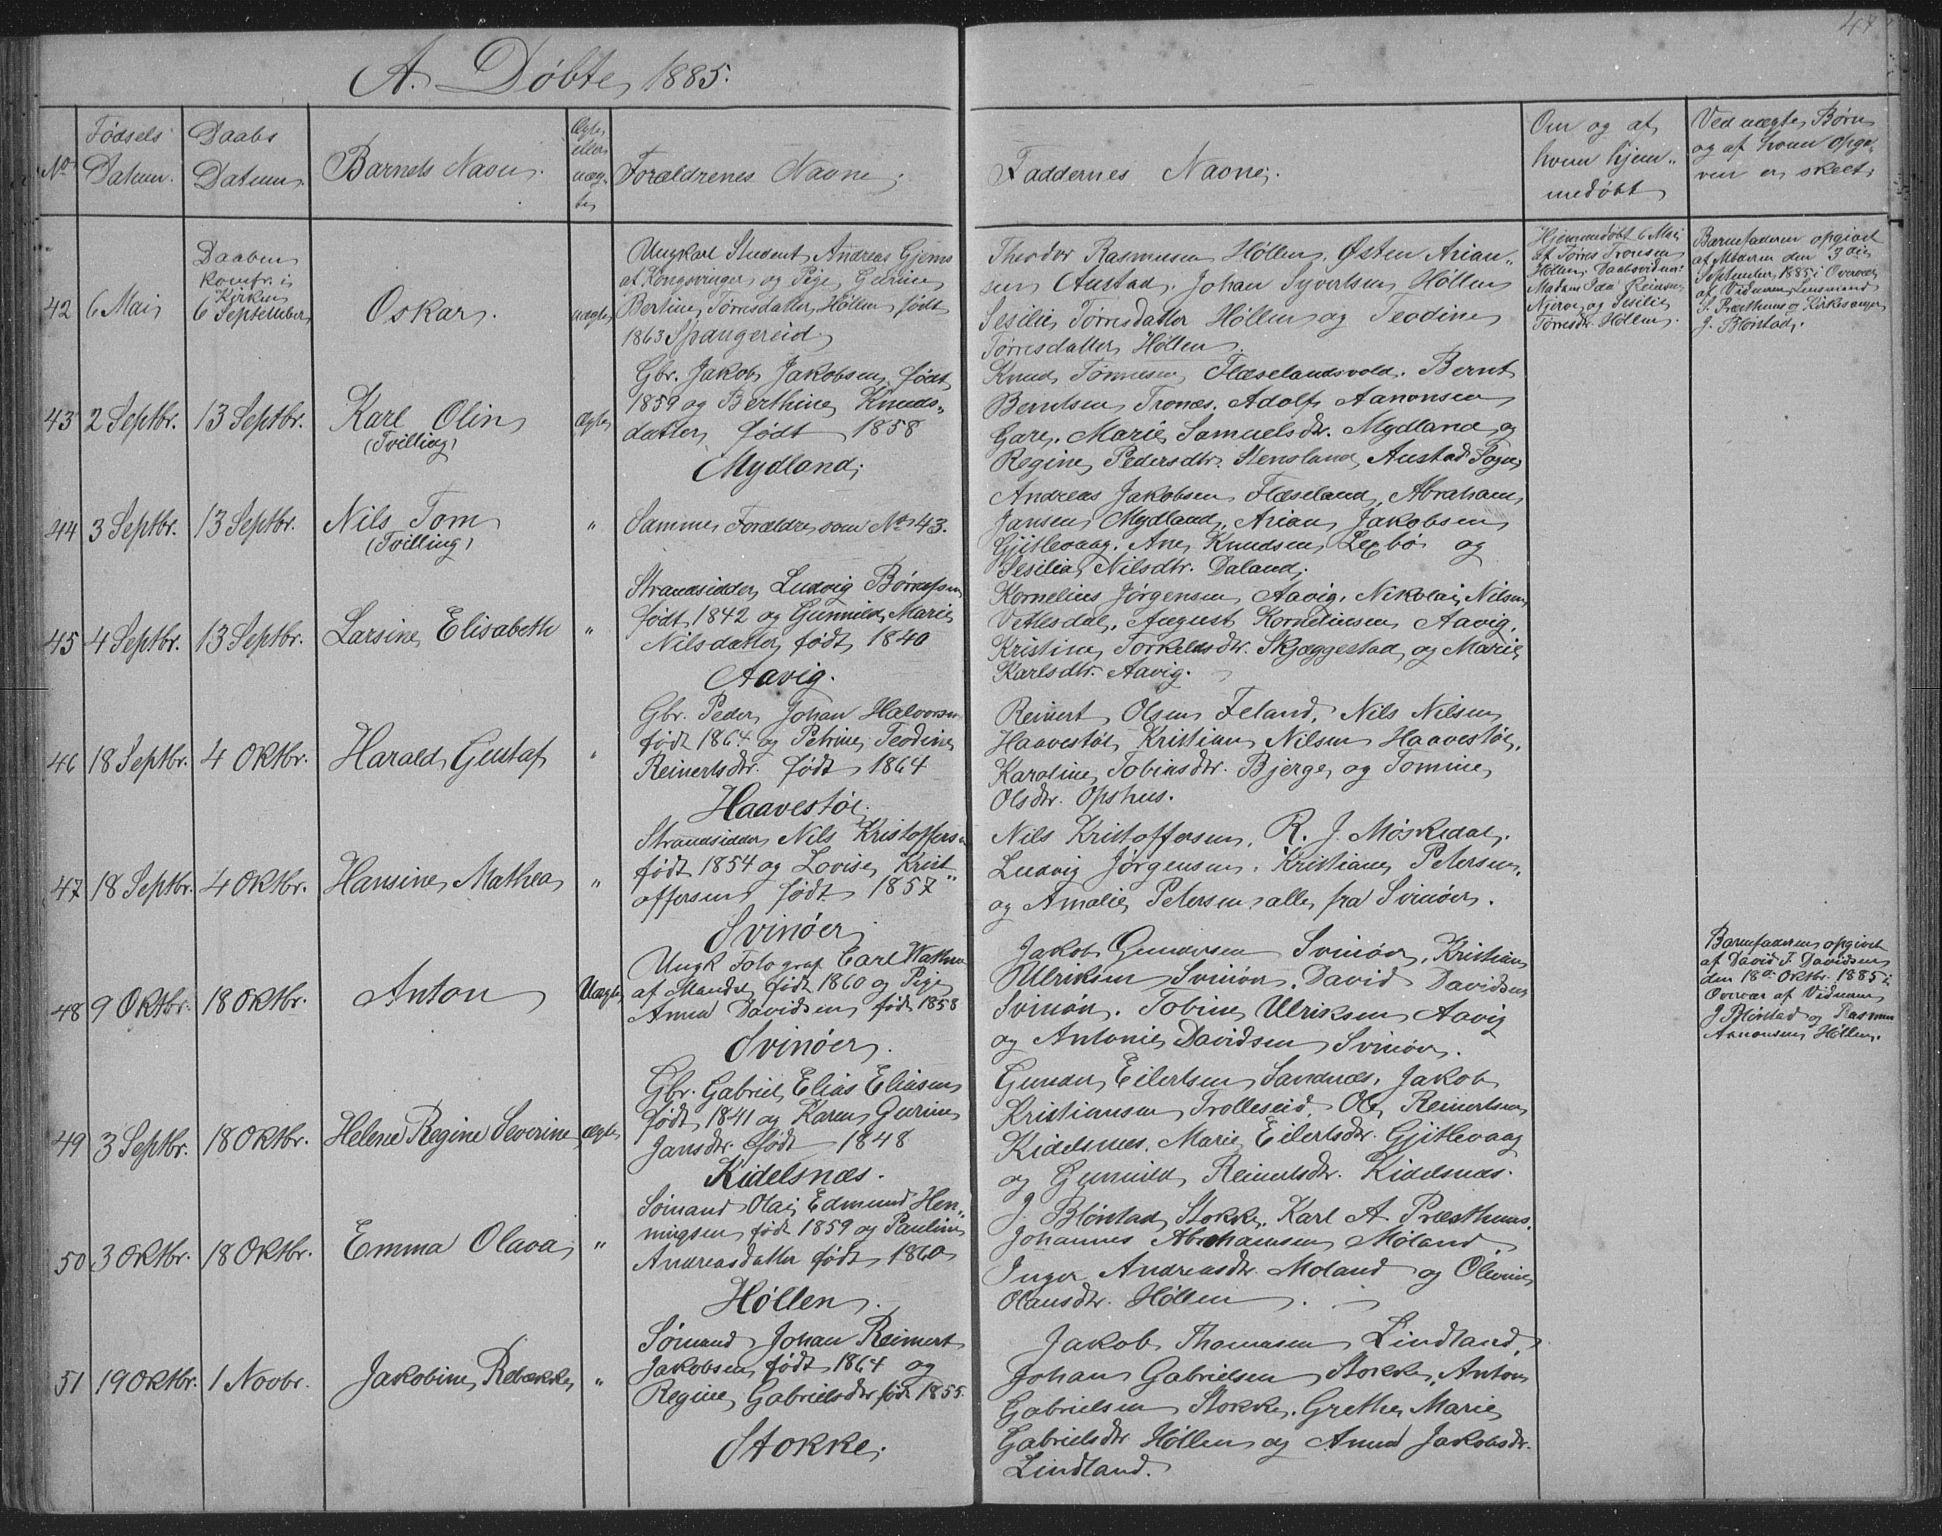 47
A. Døbte, 1885.
No
Fødsels Datum.
Daabs Datum.
Barnets Navn.
Ægte eller uægte
Forældrenes Navne.
Faddernes Navne.
Om og af hvem hjemmedøbt
Ved uægte Børn og af hvem opgiven er skeet.
42
6 Mai
Daaben
komfr. i
Kirken
6 September
Oskar.
uægte
Ungkarl Student Andreas Gjems
af Kongsvinger og Pige Gurine
Bertine Tørresdatter Høllen født
1863 Spangereid
Theodor Rasmussen Høllen, Østen Arian-
sen Austad, Johan Syvertsen Høllen
Sesilie Tørresdatter Høllen og Teodine
Tørresdatter Høllen.
Hjemmedøbt 6 Mai
af Tørres Tronsen
Høllen. Daabsvidner:
Madam Ida Reinsen
Njerve og Sesilie
Tørresdr. Høllen.
Barnefaderen opgivet
af Moderen den 3die
September 1885 i Overvær
af Vidnerne Lensmand
J. Præsthus og Kirkesanger
J. Blørstad.
43
2 Septbr.
13 Septbr.
Karl Olin
(Tvilling)
ægte
Gbr. Jakob Jakobsen født
1859 og Berthine Knuds-
datter født 1858
Mydland.
Knud Tønnesen Flæselandsvold. Bernt
Berntsen Tronæs. Adolf Aanonsen
Gare. Marie Samuelsdr. Mydland og
Regine Pedersdtr. Stensland Austad Sogn
44
3 Septbr.
13 Septbr.
Nils Tom
(Tvilling)
"
Samme Forældre som No 43.
Andreas Jakobsen Flæseland, Abraham
Jansen Mydland, Arian Jakobsen
Gjitlevaag. Ane Knudsen Lexbø og
Sesilia Nilsdtr. Daland.
45
4 Septbr.
13 Septbr.
Larsine Elisabeth
"
Strandsidder Ludvig
født 1842 og Gunnild Marie
Nilsdatter født 1840
Aavig.
Kornelius Jørgensen Aavig, Nikolai Nilsen
Vetlesdal, August Kornelinsen Aavig,
Kristine Torkelsdr. Skjæggestad og Marie
Karlsdtr. Aavig.
46
18 Septbr.
4 Oktbr.
Harald Gustaf
"
Gbr. Peder Johan Halvorsen
født 1864 og Petrine Teodine
Reinertsdtr. født 1864
Haavestøl.
Reinert Olsen Feland, Nils Nilsen
Haavestøl Kristian Nilsen Haavestøl,
Karoline Tobinsdtr. Bjerge og Tomine
Olsdtr. Opshus.
47
18 Septbr.
4 Oktbr.
Hansine Mathea
"
Strandsidder Nils Kristoffersen
født 1854 og Lovise Krist-
offersen født 1857
Svinøer
Nils Kristoffersen, R. J. Møskedal,
Ludvig Jørgensen, Kristiane Petersen,
og Amalie Petersen alle fra Svinøer.
48
9 Oktbr.
18 Oktbr.
Anton
Uægte
Ungk Fotograf Carl Wathne
af Mandal født 1860 og Pige
Anna Davidsen født 1858
Svinøer.
Jakob Gundersen Svinøer, Kristian
Ulriksen Svinøer, David Davidsen
Svinøer. Tobine Ulriksen Aavig
og Antonie Davidsen Svinøer.
Barnefaderen opgivet
af David T. Davidsen
den 18de Oktbr. 1885 i
Overvær af Vidnerne
J. Blørstad og Rasmus
Aanonsen Høllen.
49
3 Septbr.
18 Oktbr.
Helene Regine Severine
ægte
Gbr. Gabriel Elias Eliasen
født 1841 og Karen Gurine
Jansdtr. født 1848
Kidelsnæs.
Gunder Eilertsen Sandnæs, Jakob
Kristiansen Trolleseid, Ole Reinertsen
Kidelsnæs. Marie Eilertsdtr. Gjitlevaag
og Gunnild Reinertsdtr. Kidelsnæs.
50
3 Oktbr.
18 Oktbr.
Emma Olava
"
Sømand Olai Edmund Hen-
ningsen født 1859 og Pauline
Andreasdatter født 1860
Høllen.
J. Blørstad Stokke, Karl A. Præsthus,
Johannes Abrahamsen Møland
Inger Andreasdtr. Møland og Olevine
Olausdtr. Høllen.
51
19 Oktbr.
1 Novbr.
Jakobine Rebekke
"
Sømand Johan Reinert
Jakobsen født 1864 og
Regine Gabrielsdtr født 1855.
Stokke.
Jakob Thomassen Lindland,
Johan Gabrielsen Stokke, Anton
Gabrielsen Stokke, Grethe Marie
Gabrielsdtr Høllen og Anna Jakobsdtr.
Lindland.